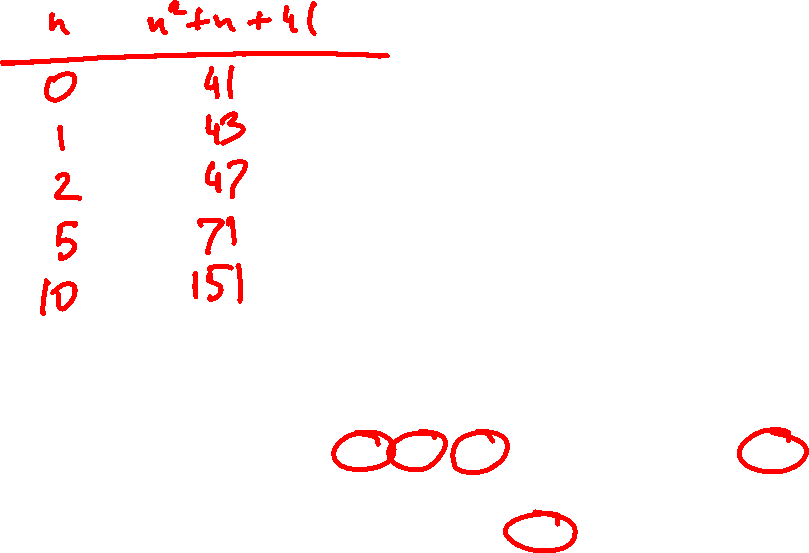 n n²+n+41
0 41
1 43
2 47
5 71
10 151